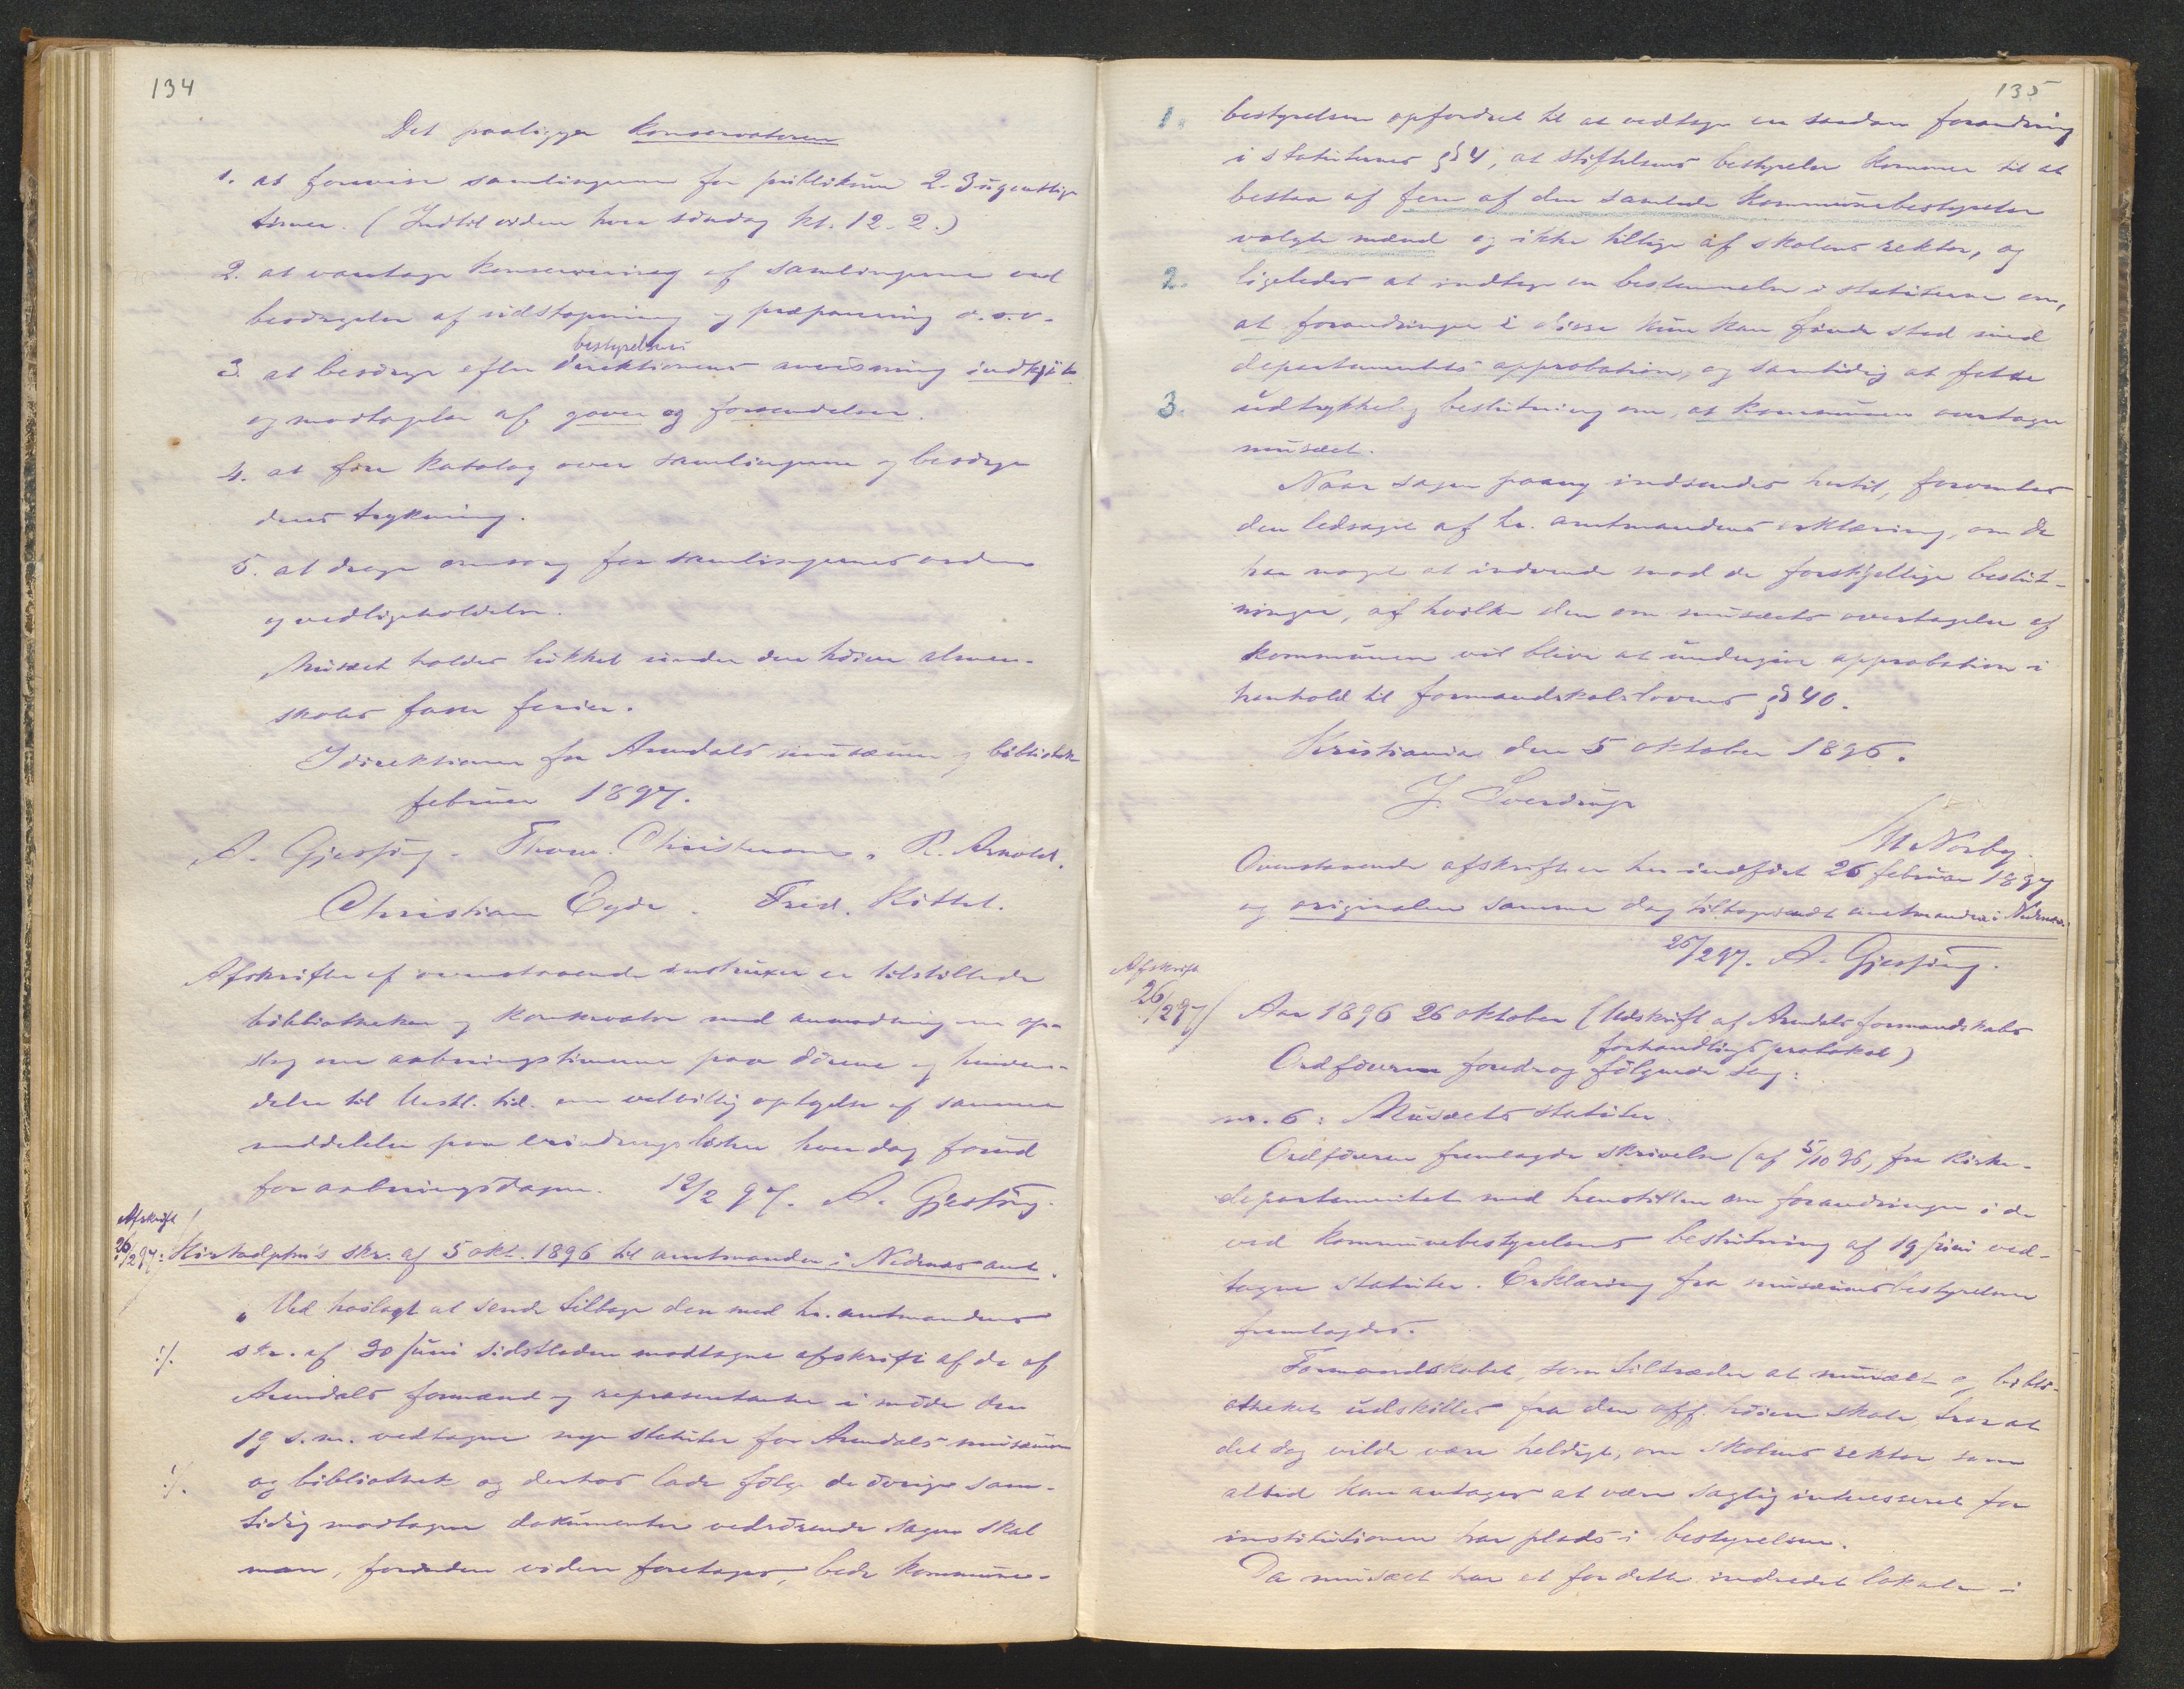 134
Det paaligger konservatoren
1. at forevise samlingerne for publikum 2-3 ugentlige
timer. (Indtil videre hver söndag kl. 12-2.)
2. at varetage konservering af samlingerne ved
besörgelse af udstopning og præparering o.s.v.
bestyrelsens
3 at besörge efter direktionens anvisning indkjöb
og modtagelse af gaver og forsendelser.
4. at före katalog over samlingerne og besörge
dens trykning.
5. at drage omsorg for samlingernes orden
og vedligeholdelse.
Musæet holdes lukket under den höiere almen-
skoles faste ferier.
I direktionen for Arendals musæum og bibliothek
februar 1897.
A. Gjessing. Thorv. Christensen. R. Arnold.
Christian Eyde. Fred. Kittel.
Afskrifter af ovenstaaende instruxer er tilstillede
bibliothekar og konservator med anmodning om op-
slag om aabningstimerne paa dörene og henven-
delse til Vestl. tid. om velvillig optagelse af samme
meddelelse paa erindringslisten hver dag forud
for aabningsdagene. 12/2 97. A. Gjessing.
Afskrift
26/2 97: Kirkedptm's skr. af 5 okt. 1896 til amtmanden i Nedenæs amt.
"Ved hoslagt at sende tilbage den med hr. amtmandens
./. skr. af 30 juni sidstleden modtagne afskrift af de af
Arendals formænd og repræsentanter i möde den
19 s.m. vedtagne nye statuter for Arendals musæum
./. og bibliothek og derhos lade fölge de övrige sam-
tidig modtagne dokumenter vedrörende sagen skal
man, forinden videre foretages, bede kommune-
135
1. bestyrelsen opfordret til at vedtage en saadan forandring
i statuternes § 4, at stiftelsens bestyrelse kommer til at
bestaa af fem af den samlede kommunebestyrelse
valgte mænd og ikke tillige af skolens rektor, og
2. ligeledes at indtage en bestemmelse i statuterne om,
at forandringer i disse kun kan finde sted med
departementets approbation, og samtidig at fatte
3. udtrykkelig beslutning om, at kommunen overtager
musæet.
Naar sagen paany indsendes hertil, forventes
den ledsaget af hr. amtmandens erklæring, om De
har noget at indvende mod de forskjellige beslut-
ninger, af hvilke den om musæets overtagelse af
kommunen vil blive at undergive approbation i
henhold til formandskabslovens § 40.
Kristiania den 5 oktober 1896.
J. Sverdrup
M Norby.
Ovenstaaende afskrift er her indfört 26 februar 1897
og originalen samme dag tilbagesendt amtmanden i Nedenæs.
26/2 97. A. Gjessing.
Afskrift
26/2 97/ Aar 1896 26 oktober (Udskrift af Arendals formandskabs
forhandlingsprotokol)
Ordföreren foredrog fölgende sag:
nr. 6: Musæets statuter.
Ordföreren fremlagde skrivelse (af 5/10 96, fra kirke-
departementet med henstillen om forandringer i de
ved kommunebestyrelsens beslutning af 19 juni ved-
tagne statuter. Erklæring fra musæumsbestyrelsen
fremlagdes.
Formandskabet, som tiltræder at musæet og bibli-
otheket udskilles fra den off. höiere skole, tror at
det dog vilde være heldigt, om skolens rektor som
altid kan antages at være saglig interesseret for
institutionen har plads i bestyrelsen.
Da musæet har et for dette indredet lokale i